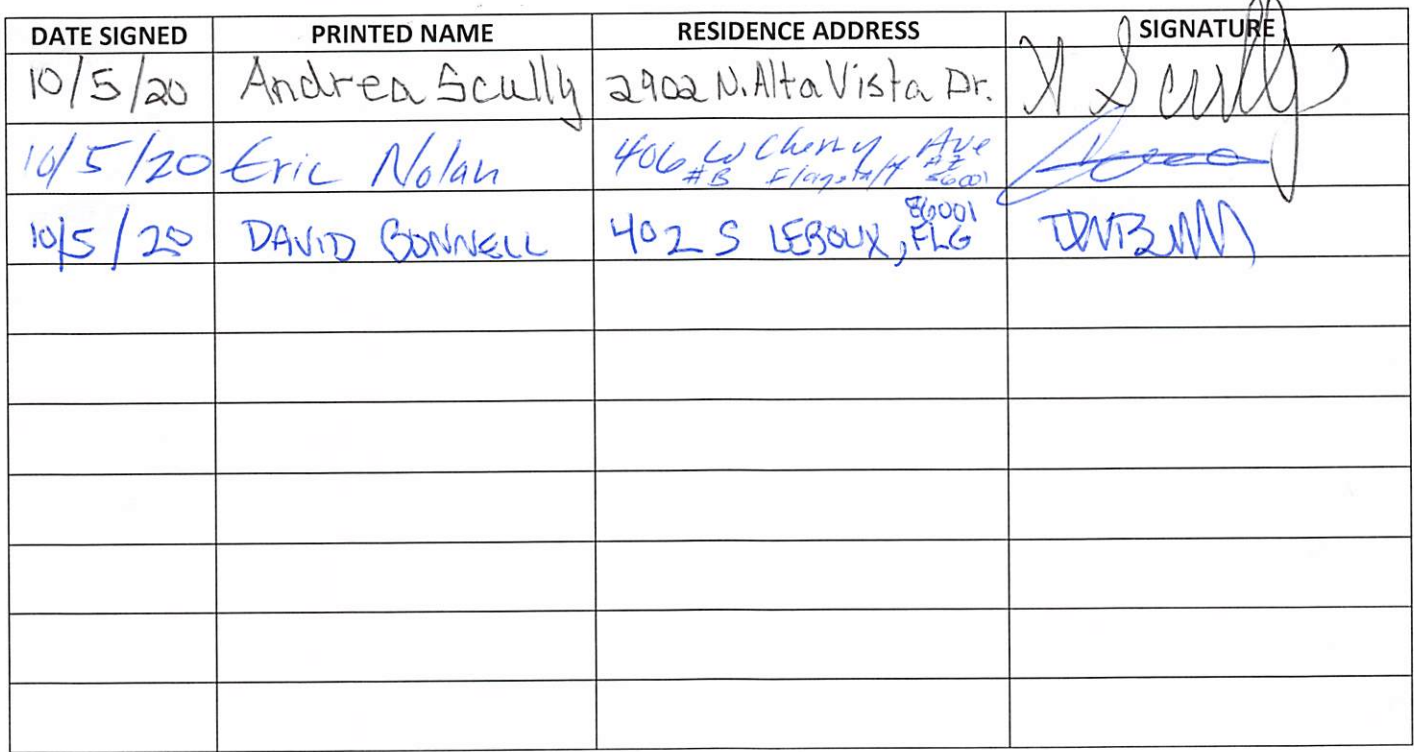 DATE SIGNED PRINTED NAME RESIDENCE ADDRESS SIGNATURE
10/5/20 Andrea Scully 2902 N. Alta Vista Dr. A Scully
10/5/20 Eric Nolan 406 W Cherry Ave
#B Flagstaff AZ 86001
86001
10/5/20 DAVID BONNELL 402 S LEROUX, FLG